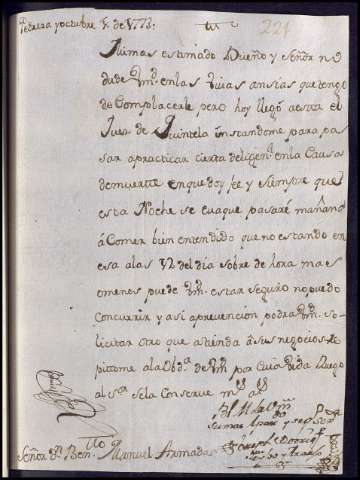 Pedreza y octubre 1 de 1773.
221
Mi mas estimado Dueño y Señor no
dude Vm. en las vivas ansias que tengo
de Complacerle pero hoy llegó a esta el
Juez de Quintela instandome para pa
sar a practicar cierta deligenª en la Causa
de muerte en que doy fee y siempre que
esta Noche se evaque pasaré mañana
á Comer bien entendido que no estando en
esa a las 12 del dia sobre de hora mas
o menos puede Vm. estar seguro no puedo
Concurrir y así aprevención podra Vm. so-
licitar otro que atienda a sus negocios Re
pittome a la Obdª de Vm. por Cuia Vida Ruego
al Sr. se la Conserve ms. as.
BLM de Vm.
su mas
Joseph
Señor Dn. Benito Manuel Armada